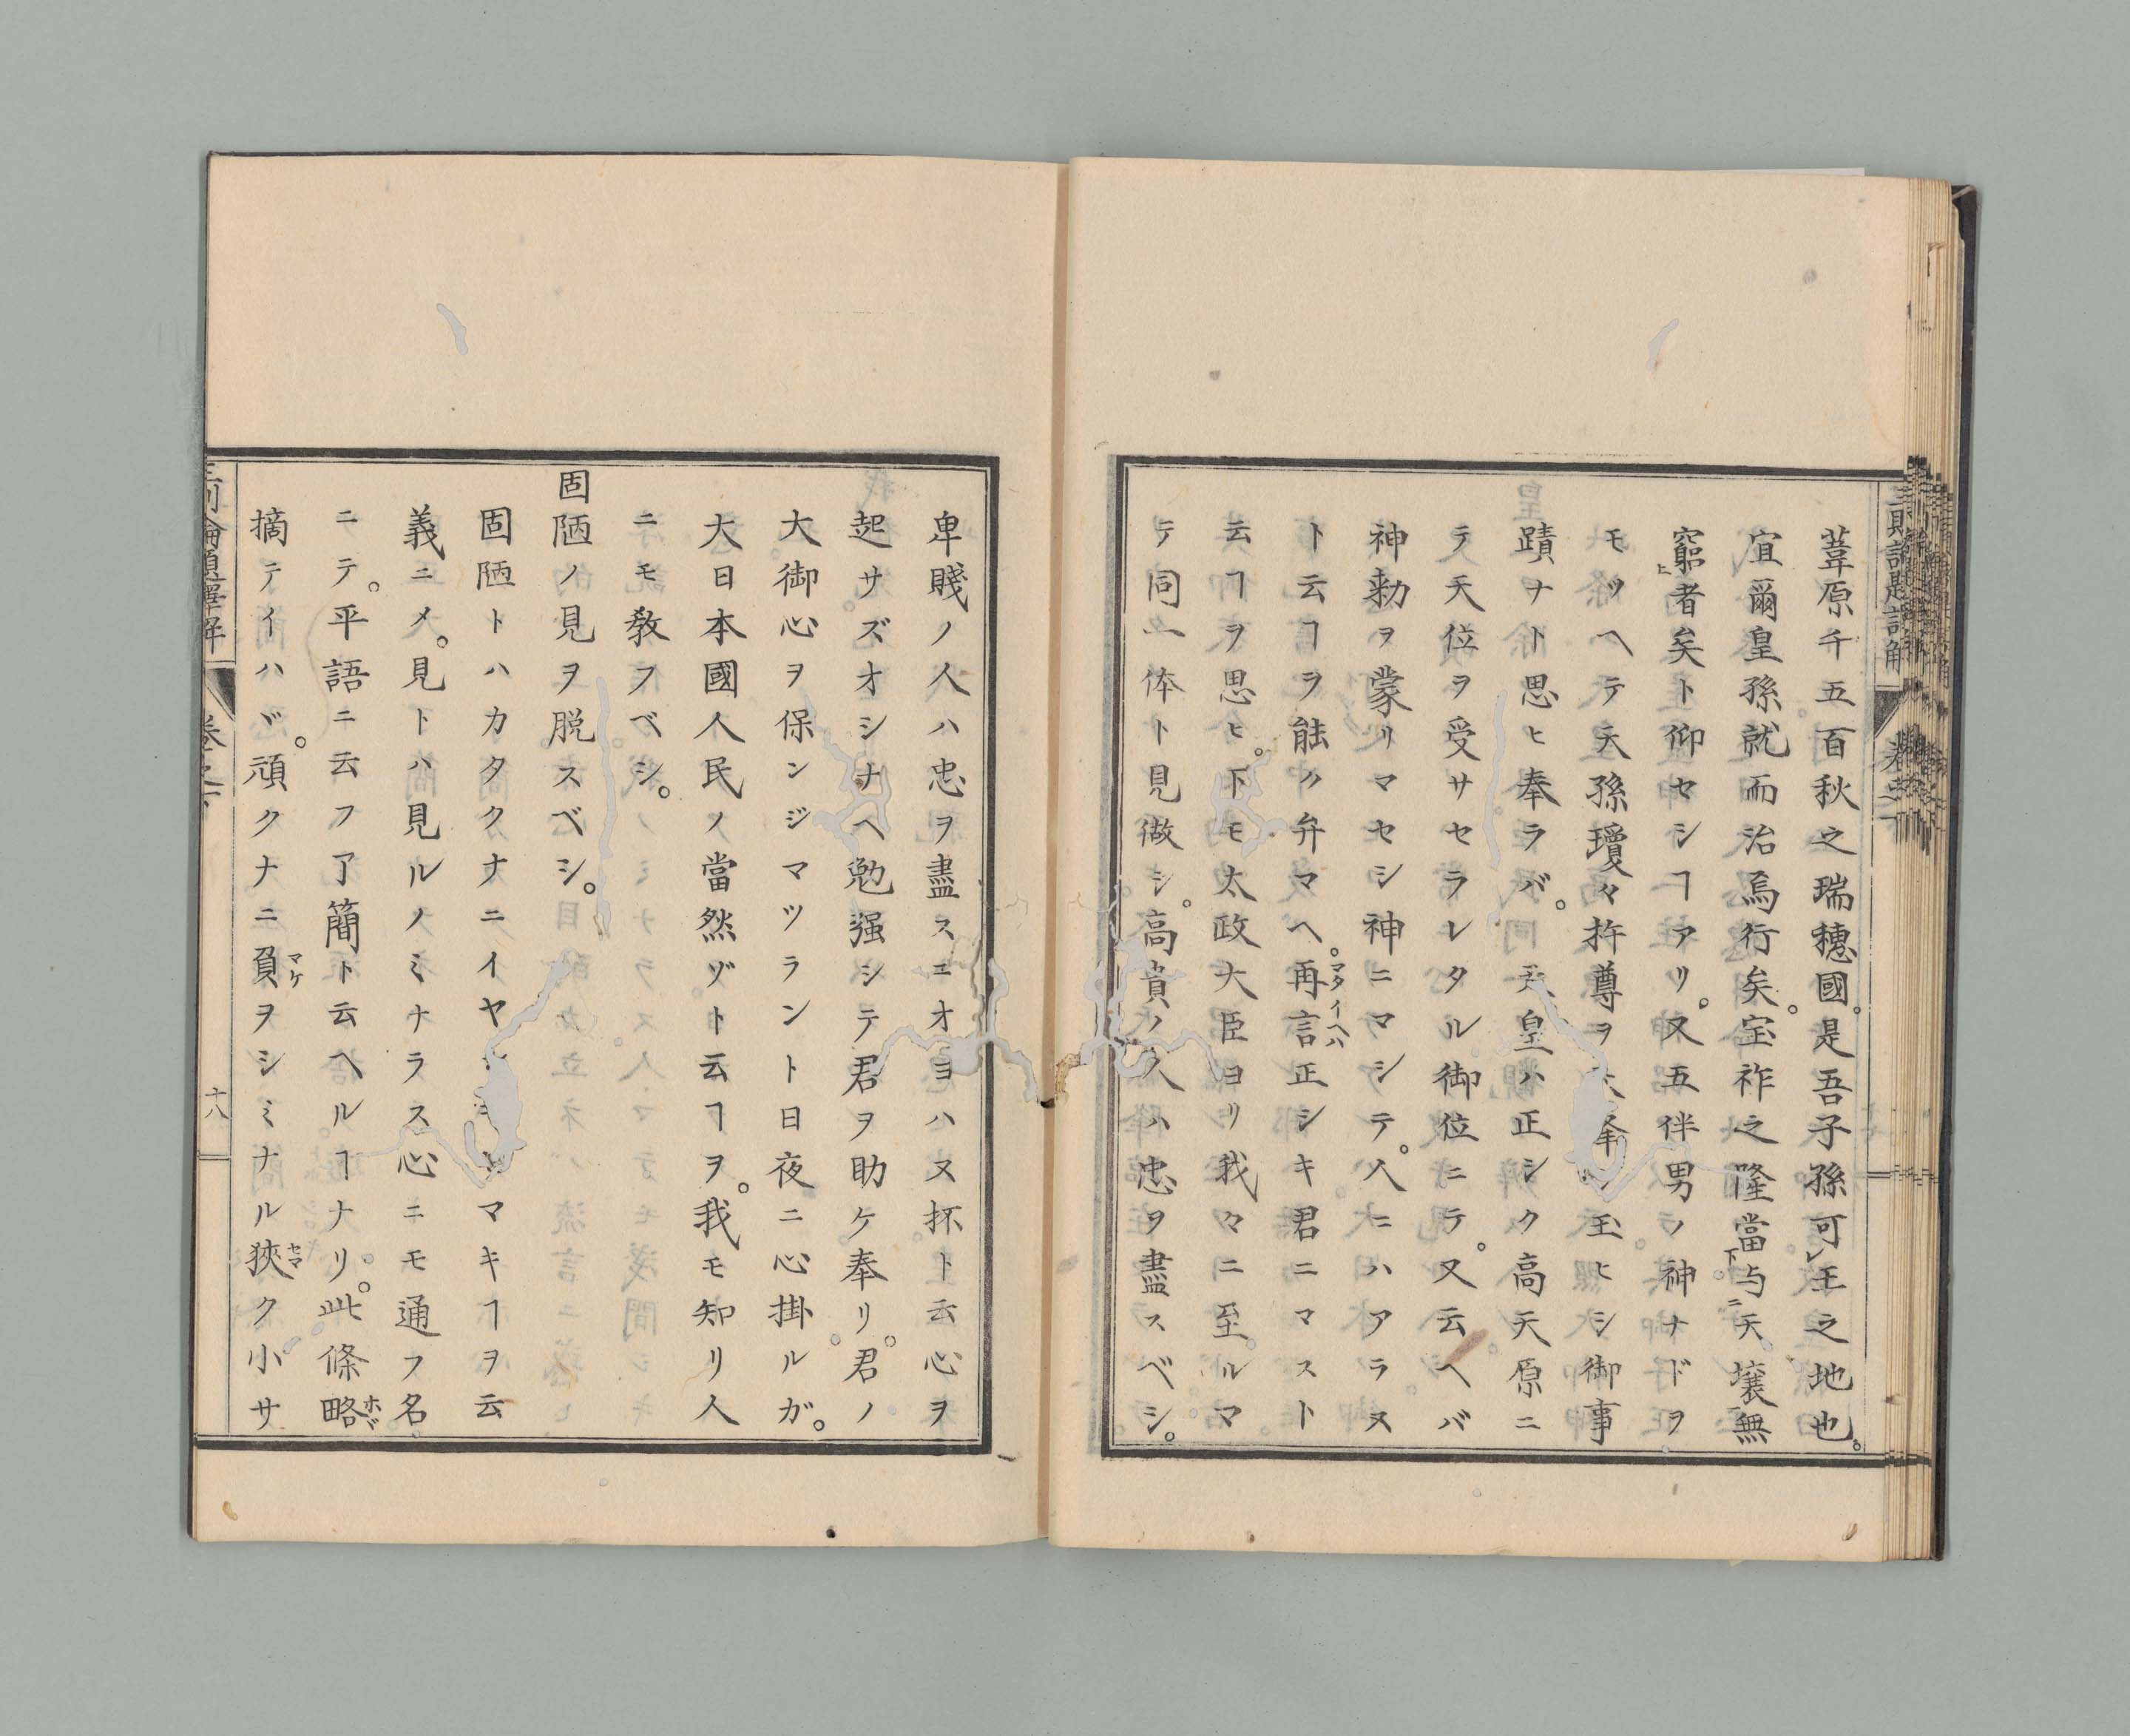 葦原千五百秋之瑞穗國。是吾子孫可レ王之地也。
宜爾皇孫就而治焉行矣。宝祚之隆當下与二天壤一無
窮者矣ト仰セシヿアリ。又五伴男ノ神ナドヲ
モツヘテ天孫瓊々杵尊ヲ降シ玉ヒシ御事
蹟ナト思ヒ奉ラバ。天皇ハ正シク高天原ニ
テ天位ヲ受サセラレタル御位ニテ。又云ヘバ
神勅ヲ蒙リマセシ神ニマシテ。人ニハアラヌ
ト云ヿヲ能ク弁マヘ。再言マタイヘハ正シキ君ニマスト
云ヿヲ思ヒ。下モ太政大臣ヨリ我々ニ至ルマ
テ同一体ト見做シ。高貴ノ人ハ忠ヲ盡スベシ。
卑賤ノ人ハ忠ヲ盡スニオヨハヌ抔ト云心ヲ
起サズオシナヘ勉强シテ君ヲ助ケ奉リ。君ノ
大御心ヲ保ンジマツラント日夜ニ心掛ルガ。
大日本國人民ノ當然ゾト云ヿヲ。我モ知リ人
ニモ教フベシ。
固陋ノ見ヲ脱スベシ。
固陋トハカタクナニイヤマキヿヲ云
義ニメ。見トハ見ルノミナラス心ニモ通フ名
ニテ。平語ニ云フ了簡ト云ヘルヿナリ。此條略ホボ
摘テイハヾ。頑クナニ負マケヲシミナル狹セマク小サ
卷之下
十八